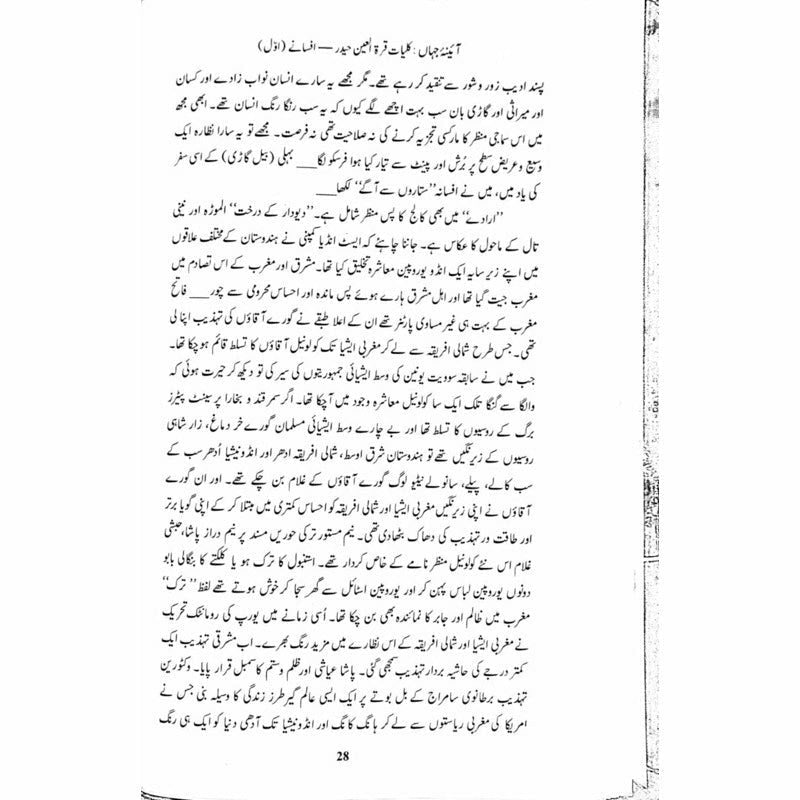 آئینۂ جہاں : کلیات قرۃ العین حیدر — افسانے (اوّل)
پسند ادیب زور و شور سے تنقید کر رہے تھے۔ مگر مجھے یہ سارے انسان نواب زادے اور کسان
اور میراثی اور گاڑی بان سب بہت اچھے لگے کیوں کہ یہ سب رنگا رنگ انسان تھے۔ ابھی مجھ
میں اس سماجی منظر کا مارکسی تجزیہ کرنے کی نہ صلاحیت تھی نہ فرصت۔ مجھے تو یہ سارا نظارہ ایک
وسیع و عریض سطح پر برُش اور پینٹ سے تیار کیا ہوا فرسکو لگا___ بہلی (بیل گاڑی) کے اسی سفر
کی یاد میں، میں نے افسانہ ''ستاروں سے آگے'' لکھا___
''ارادے'' میں بھی کالج کا پس منظر شامل ہے۔ ''دیودار کے درخت'' الموڑہ اور نینی
تال کے ماحول کا عکاس ہے۔ جاننا چاہئے کہ ایسٹ انڈیا کمپنی نے ہندوستان کے مختلف علاقوں
میں اپنے زیر سایہ ایک انڈو یوروپین معاشرہ تخلیق کیا تھا۔ مشرق اور مغرب کے اس تصادم میں
مغرب جیت گیا تھا اور اہل مشرق ہارے ہوئے پس ماندہ اور احساس محرومی سے چور___ فاتح
مغرب کے بہت ہی غیر مساوی پارٹنر تھے ان کے اعلا طبقے نے گورے آقاؤں کی تہذیب اپنا لی
تھی۔ جس طرح شمالی افریقہ سے لے کر مغربی ایشیا تک کولونیل آقاؤں کا تسلط قائم ہو چکا تھا۔
جب میں نے سابقہ سوویت یونین کی وسط ایشیائی جمہوریتوں کی سیر کی تو دیکھ کر حیرت ہوئی کہ
والگا سے گنگا تلک ایک سا کولونیل معاشرہ وجود میں آ چکا تھا۔ اگر سمرقند و بخارا پر سینٹ پیٹرز
برگ کے روسیوں کا تسلط تھا اور بے چارے وسط ایشیائی مسلمان گورے خر دماغ، زار شاہی
روسیوں کے زیر نگیں تھے تو ہندوستان شرق اوسط، شمالی افریقہ ادھر اور انڈونیشیا اُدھر سب کے
سب کالے، پیلے، سانولے نیٹیو لوگ گورے آقاؤں کے غلام بن چکے تھے۔ اور ان گورے
آقاؤں نے اپنی زیر نگیں مغربی ایشیا اور شمالی افریقہ کو احساس کمتری میں مبتلا کر کے اپنی گویا برتر
اور طاقت ور تہذیب کی دھاک بٹھا دی تھی۔ نیم مستور ترکی حوریں مسند پر نیم دراز پاشا، حبشی
غلام اس نئے کولونیل منظر نامے کے خاص کردار تھے۔ استنبول کا ترک ہو یا کلکتے کا بنگالی بابو
دونوں یوروپین لباس پہن کر اور یوروپین اسٹائل سے گھر سجا کر خوش ہوتے تھے لفظ ''ترک''
مغرب میں ظالم اور جابر کا نمائندہ بھی بن چکا تھا۔ اُسی زمانے میں یورپ کی رومانٹک تحریک
نے مغربی ایشیا اور شمالی افریقہ کے اس نظارے میں مزید رنگ بھرے۔ اب مشرقی تہذیب ایک
کمتر درجے کی حاشیہ بردار تہذیب سمجھی گئی۔ پاشا عیاشی اور ظلم و ستم کا سمبل قرار پایا۔ وکٹورین
تہذیب برطانوی سامراج کے بل بوتے پر ایک ایسی عالم گیر طرز زندگی کا وسیلہ بنی جس نے
امریکا کی مغربی ریاستوں سے لے کر ہانگ کانگ اور انڈونیشیا تک آدھی دنیا کو ایک ہی رنگ
28